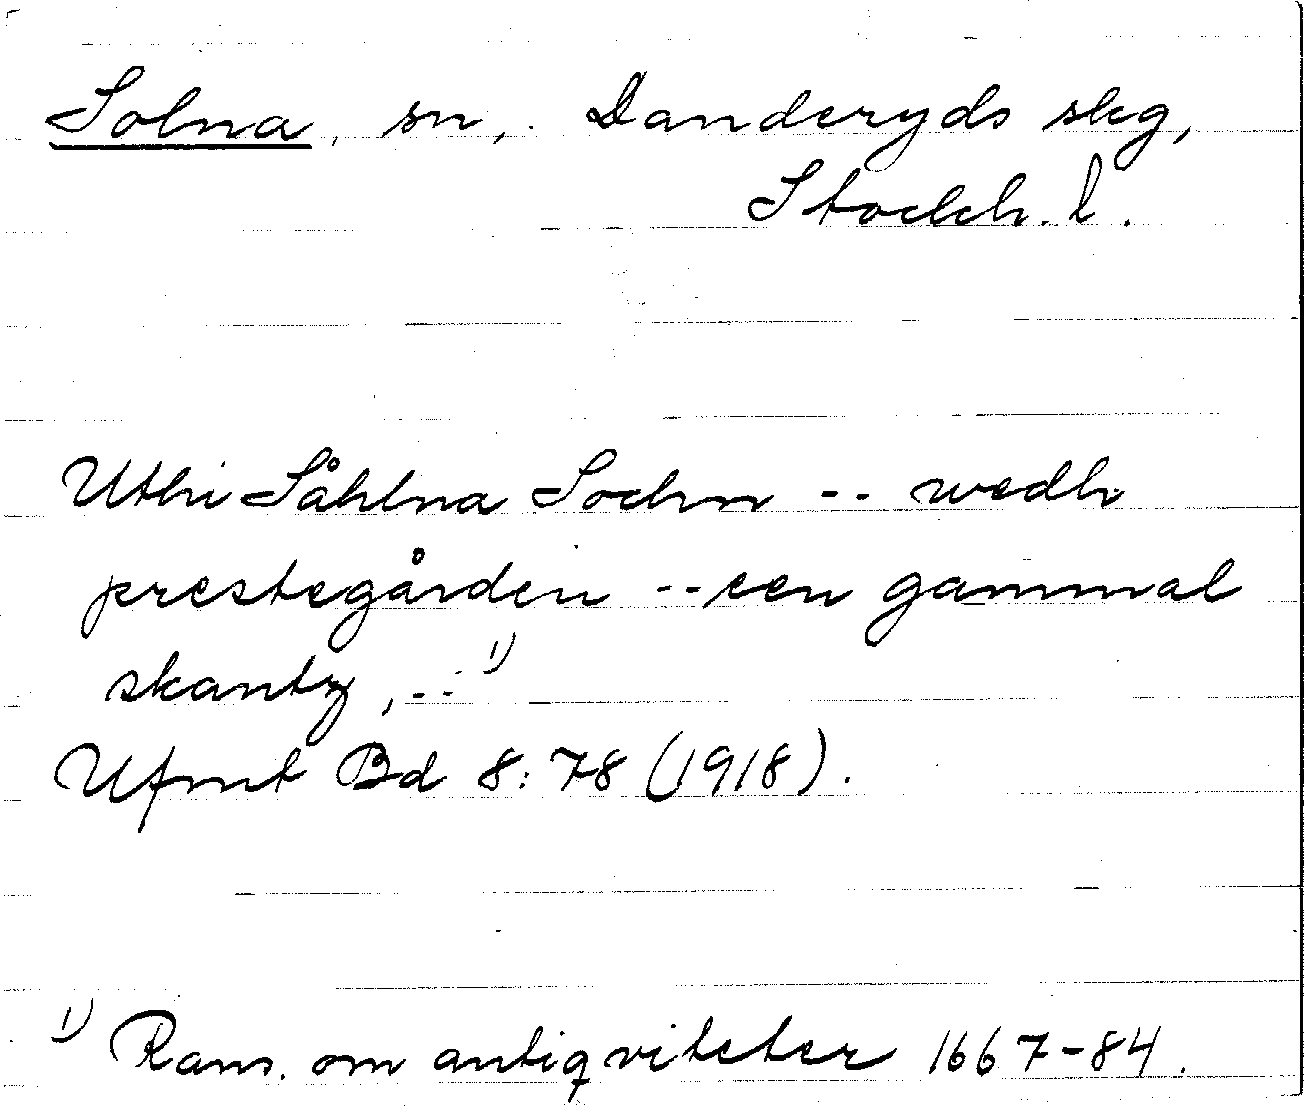 Solna, sn, Danderyds skg,
Stockh. l.
Uthi Såhlna Sochn -- wedh
prestegården -- een gammal
skantz, -- 1)
Ufmt Bd 8: 78 (1918).
1) Rans. om antiqviteter 1667-84.